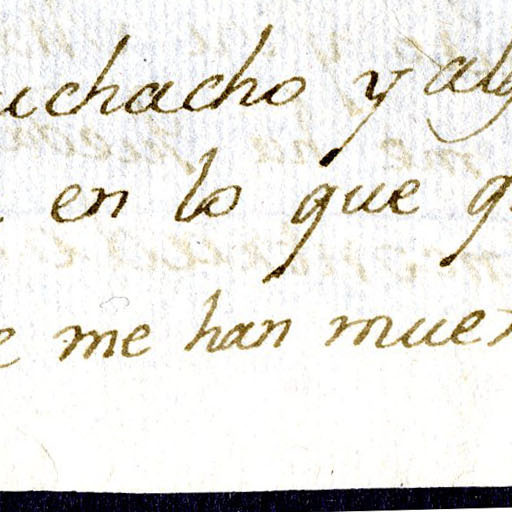 uchacho y alg
en lo que q
e me han muer